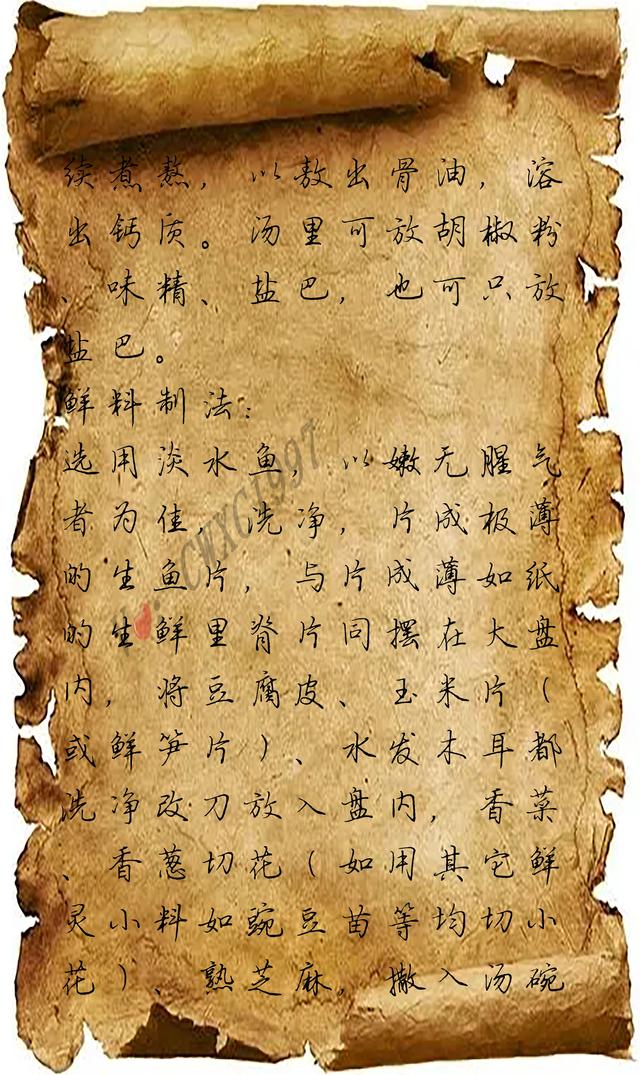 续煮熬，以敖出骨油，溶
出钙质。汤里可放胡椒粉
、味精、盐巴，也可只放
盐巴。
鲜料制法：
选用淡水鱼，以嫩无腥气
者为佳，洗净，片成极薄
的生鱼片，与片成薄如纸
的生鲜里脊片同摆在大盘
内，将豆腐皮、玉米片（
或鲜笋片）、水发木耳都
洗净改刀放入盘内，香菜
、香葱切花（如用其它鲜
灵小料如豌豆苗等均切小
花）、熟芝麻。撒入汤碗